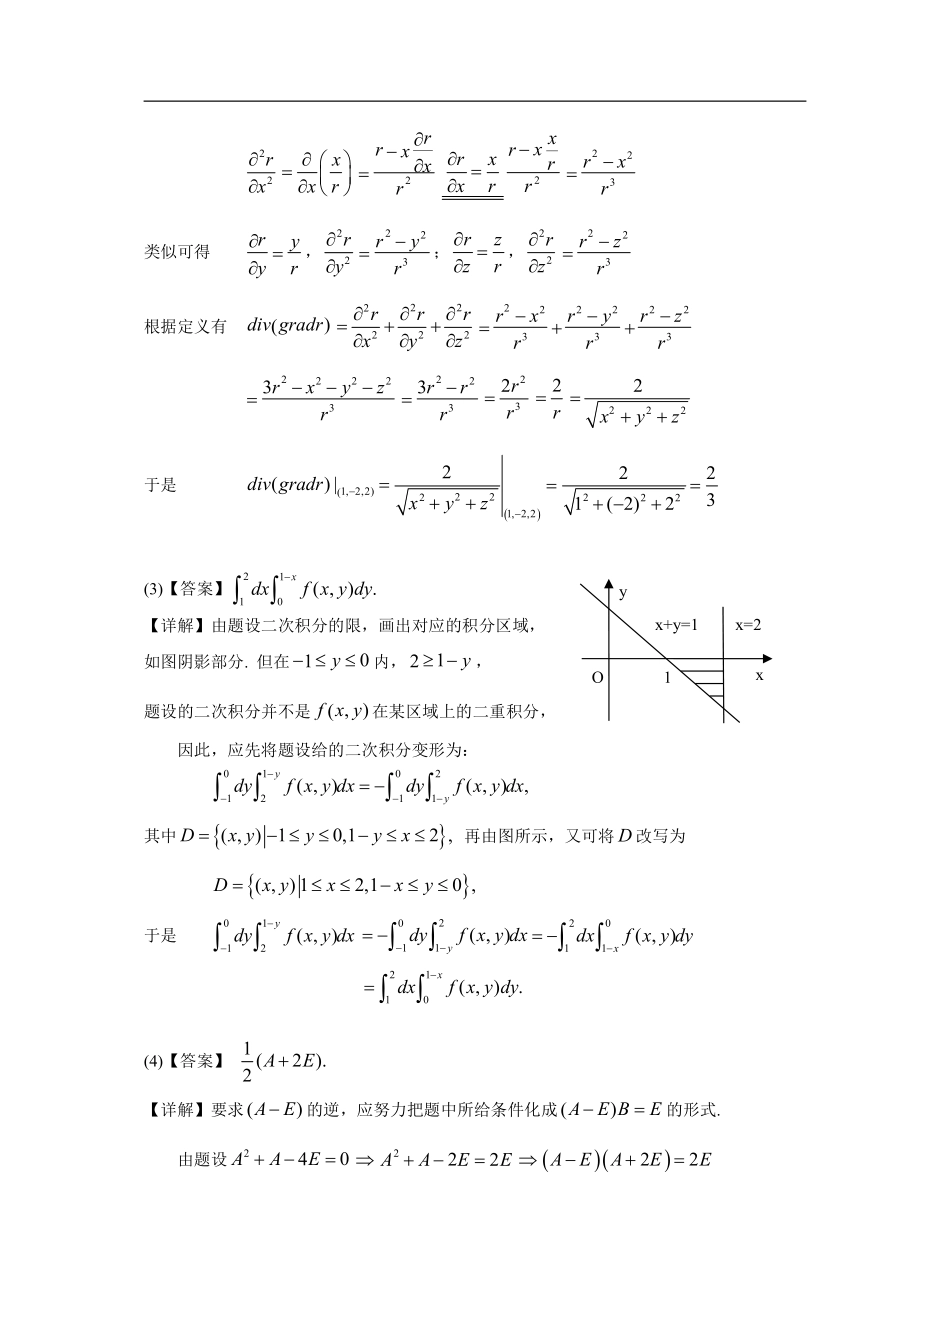 ∂²r/∂x² = ∂/∂x (x/r) = (r − x ∂r/∂x)/r² ∂r/∂x = x/r (r − x x/r)/r² = (r² − x²)/r³
类似可得 ∂r/∂y = y/r , ∂²r/∂y² = (r² − y²)/r³ ; ∂r/∂z = z/r , ∂²r/∂z² = (r² − z²)/r³
根据定义有 div(gradr) = ∂²r/∂x² + ∂²r/∂y² + ∂²r/∂z² = (r² − x²)/r³ + (r² − y²)/r³ + (r² − z²)/r³
= (3r² − x² − y² − z²)/r³ = (3r² − r²)/r³ = 2r²/r³ = 2/r = 2/√(x² + y² + z²)
于是 div(gradr)|(1,−2,2) = 2/√(x² + y² + z²) |(1,−2,2) = 2/√(1² + (−2)² + 2²) = 2/3
(3)【答案】∫₁² dx∫₀^(1−x) f(x, y)dy.
【详解】由题设二次积分的限，画出对应的积分区域，
如图阴影部分. 但在 −1 ≤ y ≤ 0 内， 2 ≥ 1 − y ，
题设的二次积分并不是 f(x, y) 在某区域上的二重积分，
y
x+y=1
x=2
O
1
x
因此，应先将题设给的二次积分变形为:
∫₋₁⁰ dy∫₂^(1−y) f(x, y)dx = −∫₋₁⁰ dy∫_(1−y)^2 f(x, y)dx,
其中 D = {(x, y)|−1 ≤ y ≤ 0,1 − y ≤ x ≤ 2}, 再由图所示，又可将 D 改写为
D = {(x, y)|1 ≤ x ≤ 2,1 − x ≤ y ≤ 0},
于是 ∫₋₁⁰ dy∫₂^(1−y) f(x, y)dx = −∫₋₁⁰ dy∫_(1−y)^2 f(x, y)dx = −∫₁² dx∫_(1−x)^0 f(x, y)dy
= ∫₁² dx∫₀^(1−x) f(x, y)dy.
(4)【答案】 1/2 (A + 2E).
【详解】要求 (A − E) 的逆，应努力把题中所给条件化成 (A − E)B = E 的形式.
由题设 A² + A − 4E = 0 ⇒ A² + A − 2E = 2E ⇒ (A − E)(A + 2E) = 2E